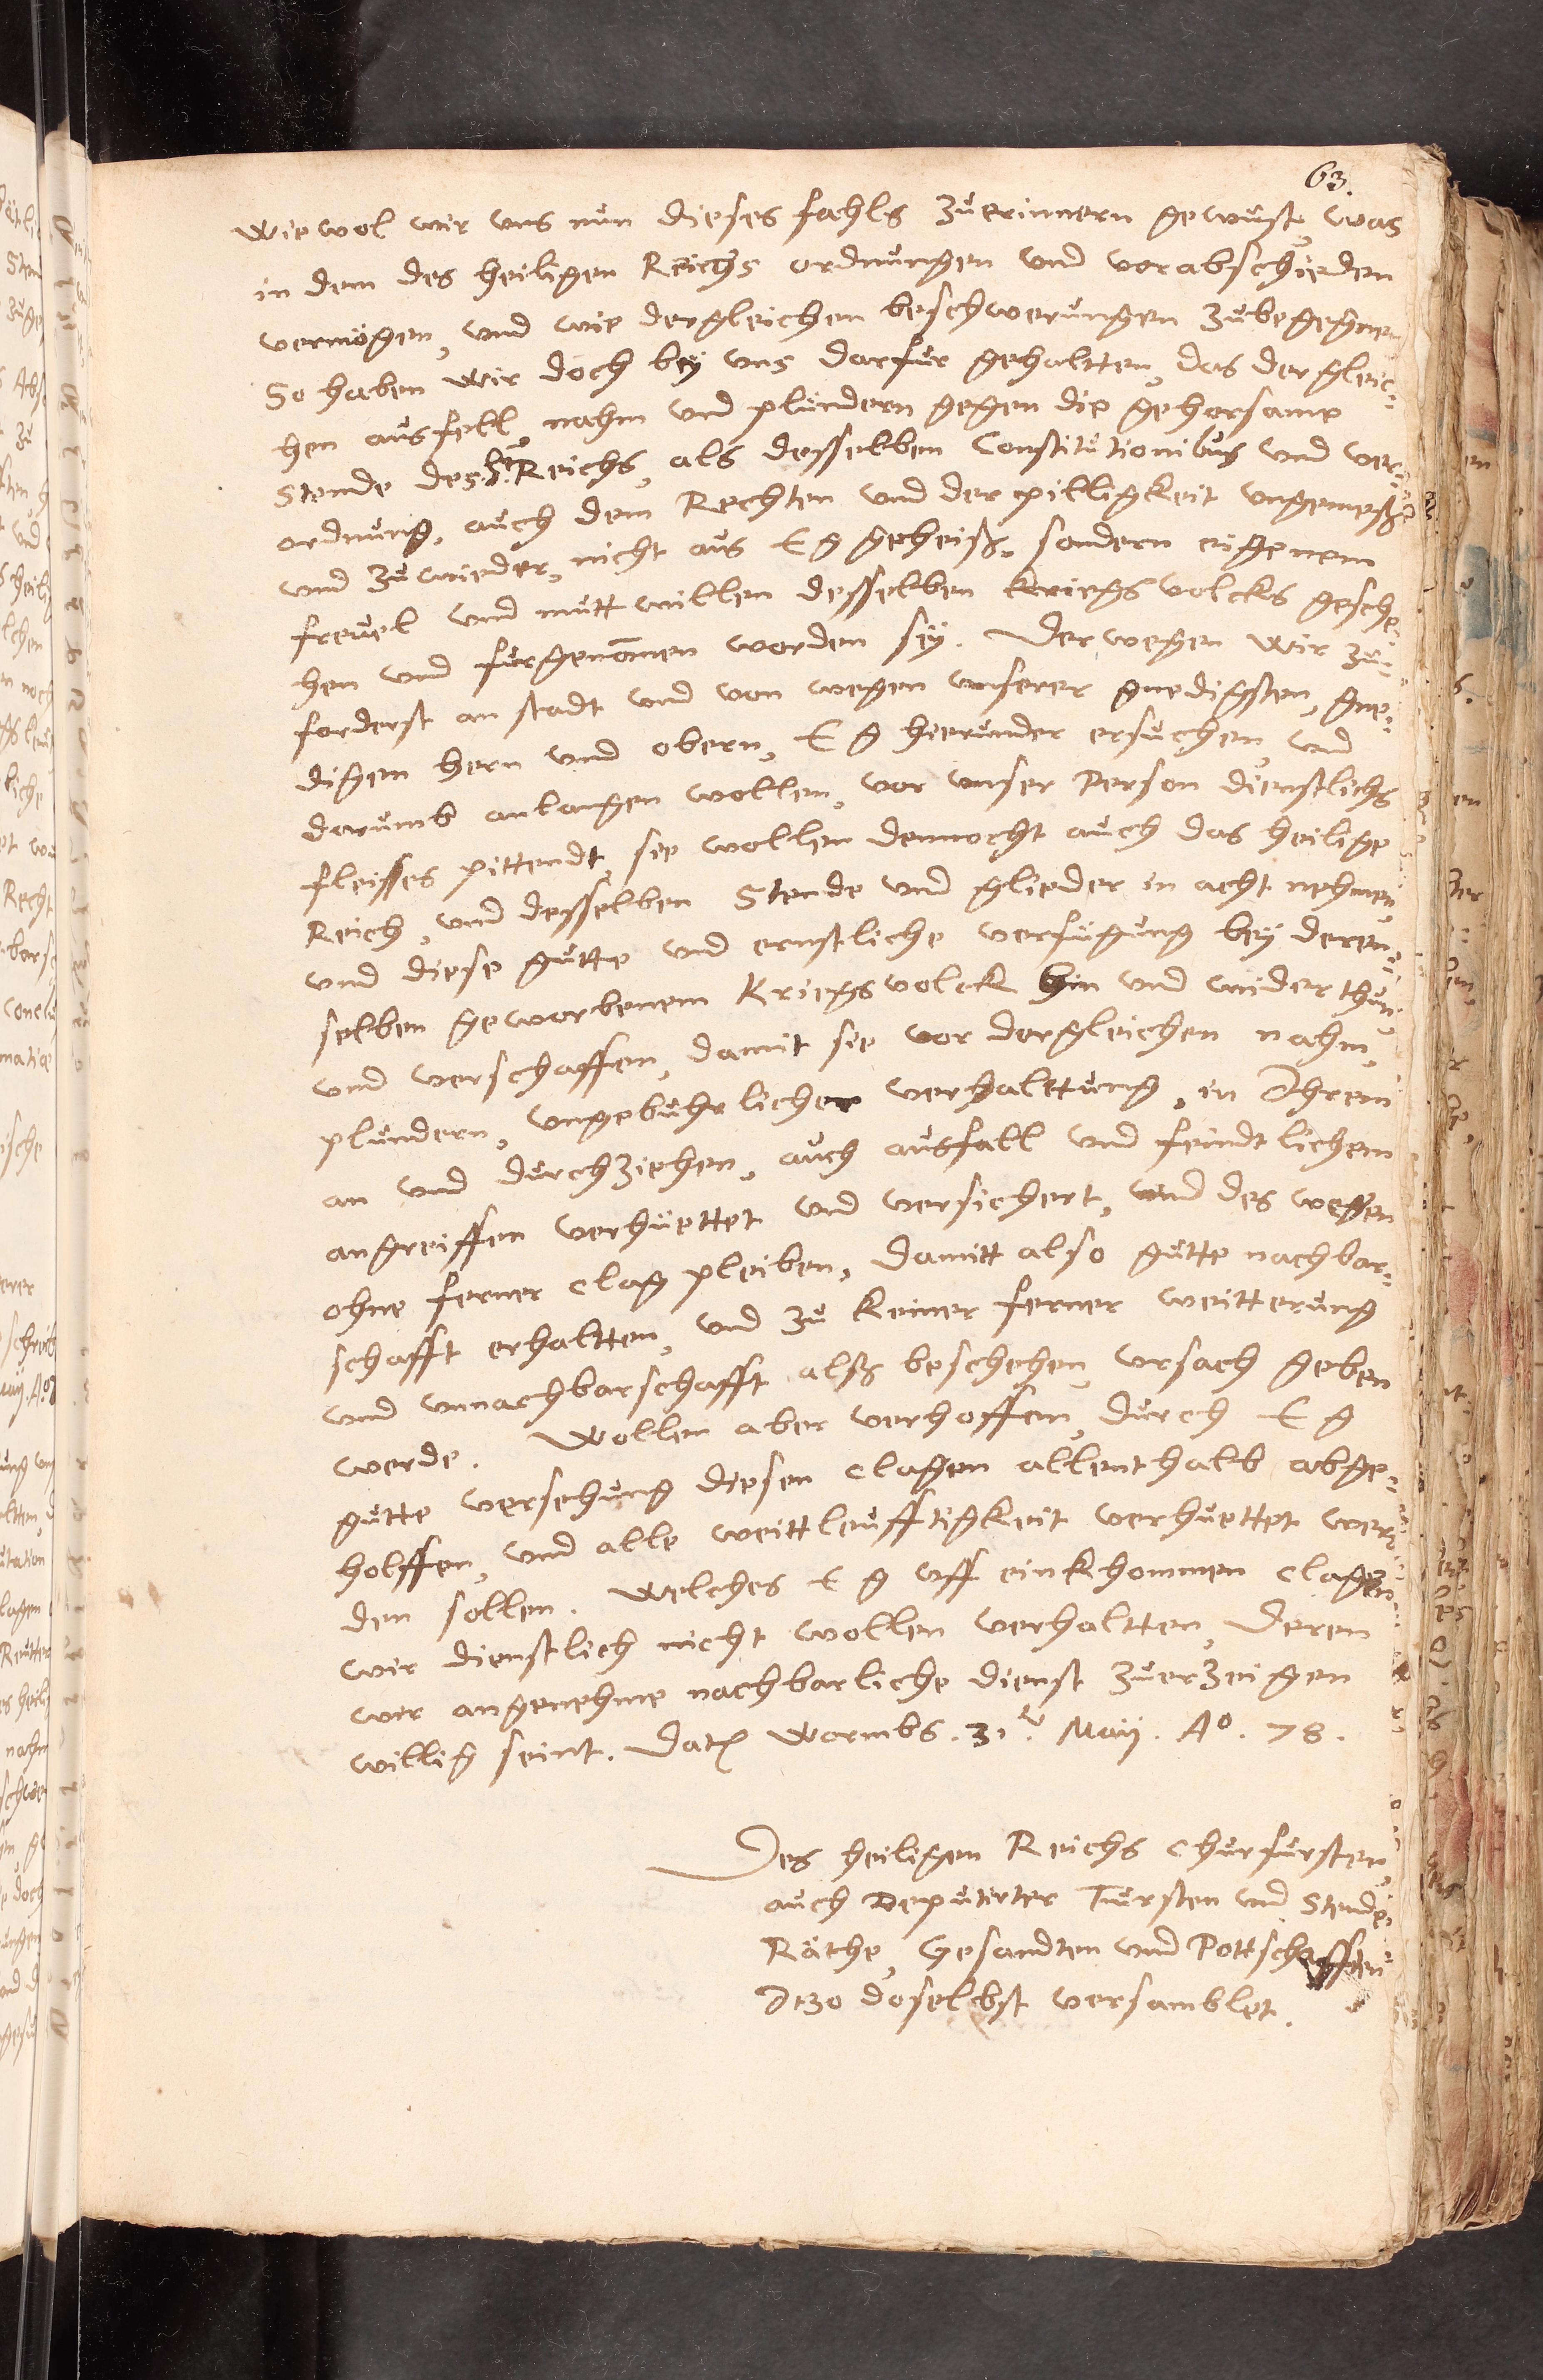 63.
wiewol wir uns nun dieses fahls zuerinnern gewust, was
in dem des heiligen Reichs ordnungen und vorabschieden
vermögen, und wie dergleichen beschwerungen zubegegnen
So haben wir doch bey uns darfur gehaltten, das dergleic-
hen ausfell, nahm und plundern gegen die gehorsame
Stende des H. Reichs, als desselben Constitutionibus und ver-
ordnung, auch dem Rechten und der pilligkeit ungemeß
und zuwieder, nicht aus E g geheiß, sondern eigenem
frevel und muttwillen desselben kriegsvolcks gesche-
hen und furgenom̄en worden sey. Derwegen wir zu-
forderst an stadt und von wegen unserer gnedigsten, gne-
digen hern und obern, E g hierunder ersuchen, und
darumb anlangen wollen, vor unser Person dienstlichs
fleisses pittendt, sie wollen dennocht auch das heilige
Reich, und desselben Stende und glieder in acht nehmen,
und diese gutte und ernstliche verfügung bey deren-
selben geworbenem Kriegsvolck hin und wider thun,
und verschaffen, damit sie vor dergleichen nahm,
plundern, ungebuhrlicher verhalttung, in Ihrem
an und durchziehen, auch ausfall und feindtlichem
angreiffen verhüettet und versichert, und des wegen
ohne ferner clag pleiben, damitt also gutte nachbar-
schafft erhaltten, und zu keiner ferner weitterung
und unnachbarschafft alß beschehen, ursach geben
werde. Wollen aber verhoffen, durch E g
gutte versehung diesen clagen allenthalb abge-
holffen, und alle weittleufftigkeit verhuettet wer-
den sollen. Welches E g uff einkhommen clagen
wir dienstlich nicht wollen verhaltten, deren
wir angenehme nachbarliche dienst zuerzeigen
willig seint. Dat. Wormbs. 31. Maij. Aº. 78.
Des heiligen Reichs Churfursten,
auch Deputirter Fursten und Stende,
Räthe, Gesandten und Pottschafften
Itzo doselbst versamblet.